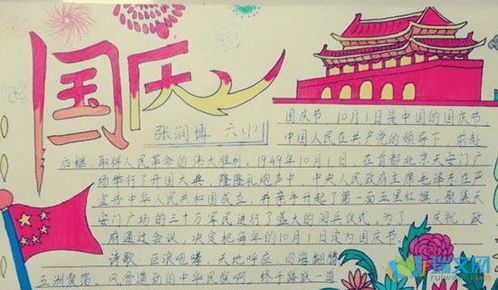 国庆
张润博 六(1)
国庆节 10月1日是中国的国庆节
中国人民在共产党的领导下,前赴
后继,取得人民革命的伟大胜利,1949年10月1日,在首都北京天安门广
场举行了开国大典,隆隆礼炮声中,中央人民政府主席毛泽东庄严
宣告中华人民共和国成立,并亲手升起了第一面五星红旗,聚集天
安门广场的三十万军民进行了盛大的阅兵仪式,为了 庆祝,政
府通过会议,决定把每年的10月1日定为国庆节
诗歌 巨浪咆哮 天地呼应 四海翻腾
五洲震荡 风雷激动的中华民族啊 终于路
瑞文网